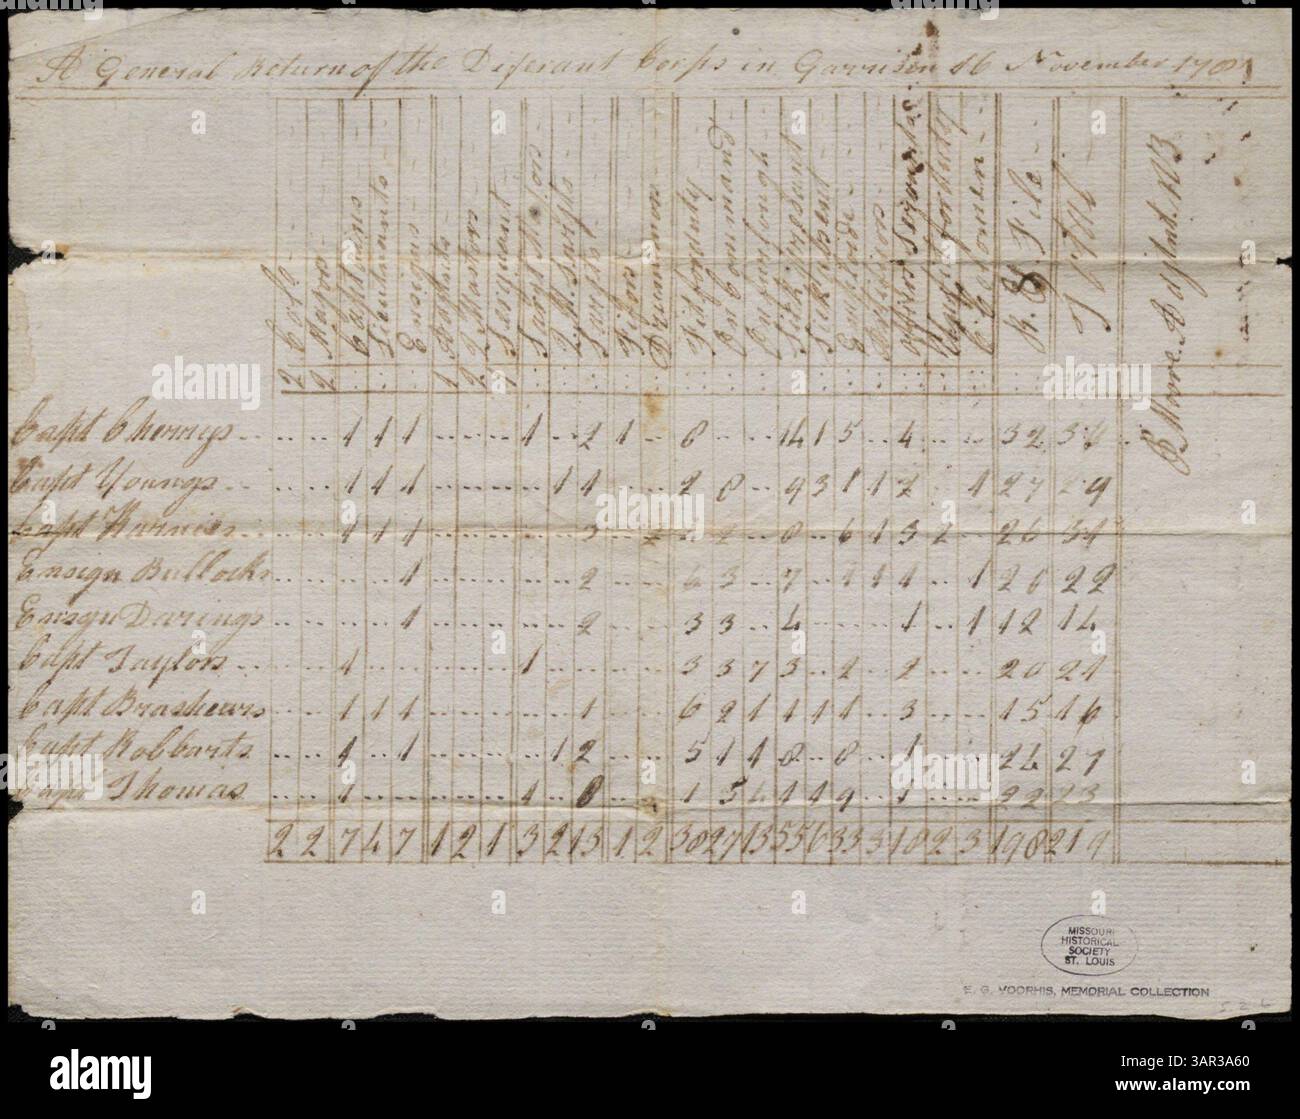 A General Return of the Diferant Corps in Garrison 16 November 1781
Captains
Lieutenants
Ensigns
2 Mastors
Sargt Majors
Drummon
Fit for duty
On Command
On furlough
Sick present
Sick Absent
R. & File
Total
B Moore Adjutant. NB
2 2 1 2 1
Capt Cherrys 1 1 1 1 2 1 8 14 1 5 4 32 36
Capt Youngs 1 1 1 1 1 2 8 9 3 1 1 2 1 27 29
Capt 1 1 1 3 2 2 8 6 1 3 2 26 31
Ensign Bullocks 1 2 6 3 7 1 1 1 1 20 22
Ensign Darings 1 2 3 3 4 1 1 12 14
Capt Taylors 1 1 3 3 7 3 2 2 20 21
Capt Brashears 1 1 1 1 6 2 1 1 1 1 3 15 16
Capt Robbarts 1 1 1 2 5 1 1 8 8 1 24 27
Capt Thomas 1 1 1 5 4 1 1 9 1 22 23
2 2 7 4 7 1 2 1 3 2 13 1 2 38 27 13 55 6 33 3 18 2 3 198 219
MISSOURI
HISTORICAL
SOCIETY
ST. LOUIS
E. G. VOORHIS, MEMORIAL COLLECTION
alamy
Image ID: 3AR3A60
www.alamy.com